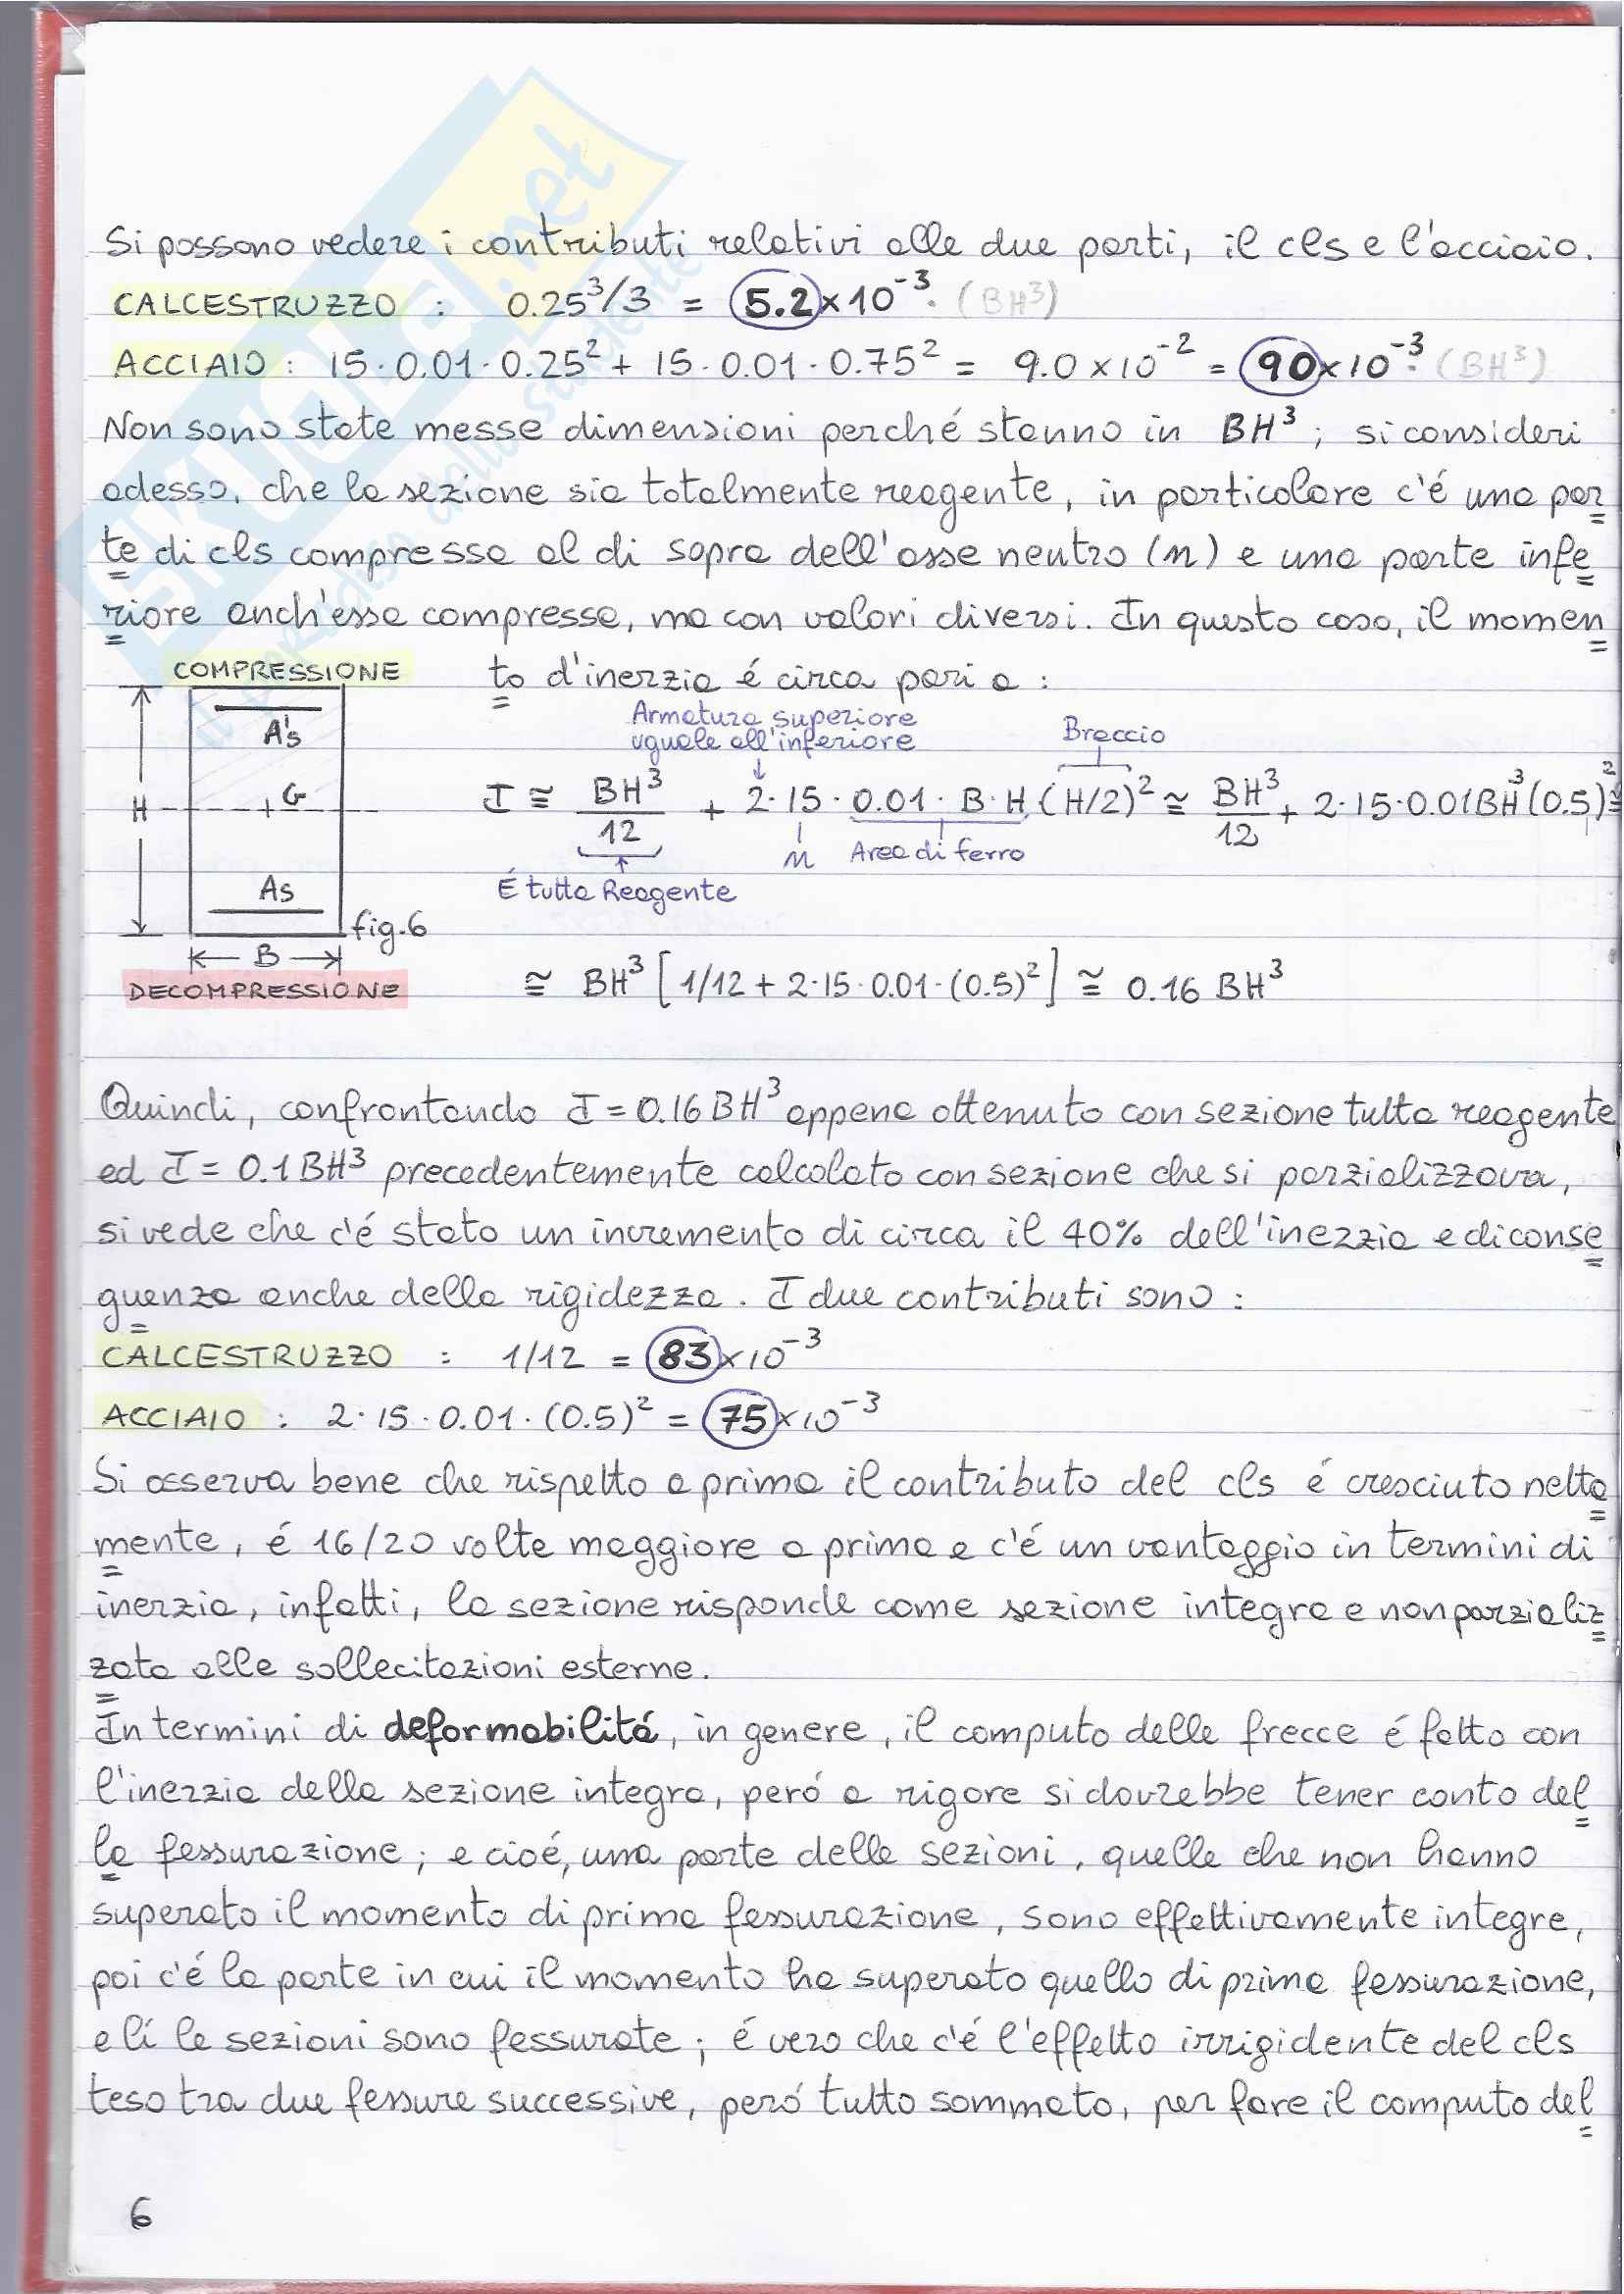 Si possono vedere i contributi relativi alle due parti, il cls e l'acciaio.
CALCESTRUZZO : 0.25³/3 = 5.2×10⁻³· (BH³)
ACCIAIO : 15·0.01·0.25² + 15·0.01·0.75² = 9.0×10⁻² = 90×10⁻³· (BH³)
Non sono state messe dimensioni perché stanno in BH³ ; si consideri
adesso, che la sezione sia totalmente reagente, in particolare c'é una par
te di cls compressa al di sopra dell'asse neutro (n) e una parte infe
riore anch'essa compressa, ma con valori diversi. In questo caso, il momen
to d'inerzia é circa pari a :
COMPRESSIONE
A's
G
H
As
B
fig.6
DECOMPRESSIONE
Armatura superiore
uguale all'inferiore
Braccio
J ≅ BH³/12 + 2·15·0.01·B·H·(H/2)² ≅ BH³/12 + 2·15·0.01BH³(0.5)² ≅
n
Area di ferro
É tutta Reagente
≅ BH³[1/12 + 2·15·0.01·(0.5)²] ≅ 0.16 BH³
Quindi, confrontando J = 0.16 BH³ appena ottenuto con sezione tutta reagente
ed J = 0.1 BH³ precedentemente calcolato con sezione che si parzializzava,
si vede che c'é stato un incremento di circa il 40% dell'inerzia e di conse
guenza anche della rigidezza. I due contributi sono :
CALCESTRUZZO : 1/12 = 83×10⁻³
ACCIAIO : 2·15·0.01·(0.5)² = 75×10⁻³
Si osserva bene che rispetto a prima il contributo del cls é cresciuto netta
mente, é 16/20 volte maggiore a prima e c'é un vantaggio in termini di
inerzia, infatti, la sezione risponde come sezione integra e non parzializ
zata alle sollecitazioni esterne.
In termini di deformabilitá, in genere, il computo delle frecce é fatto con
l'inerzia della sezione integra, peró a rigore si dovrebbe tener conto del
la fessurazione ; e cioé, una parte delle sezioni, quelle che non hanno
superato il momento di prima fessurazione, sono effettivamente integre,
poi c'é la parte in cui il momento ha superato quello di prima fessurazione,
e lí le sezioni sono fessurate ; é vero che c'é l'effetto irrigidente del cls
teso tra due fessure successive, peró tutto sommato, per fare il computo del
6
SKUOLA.net